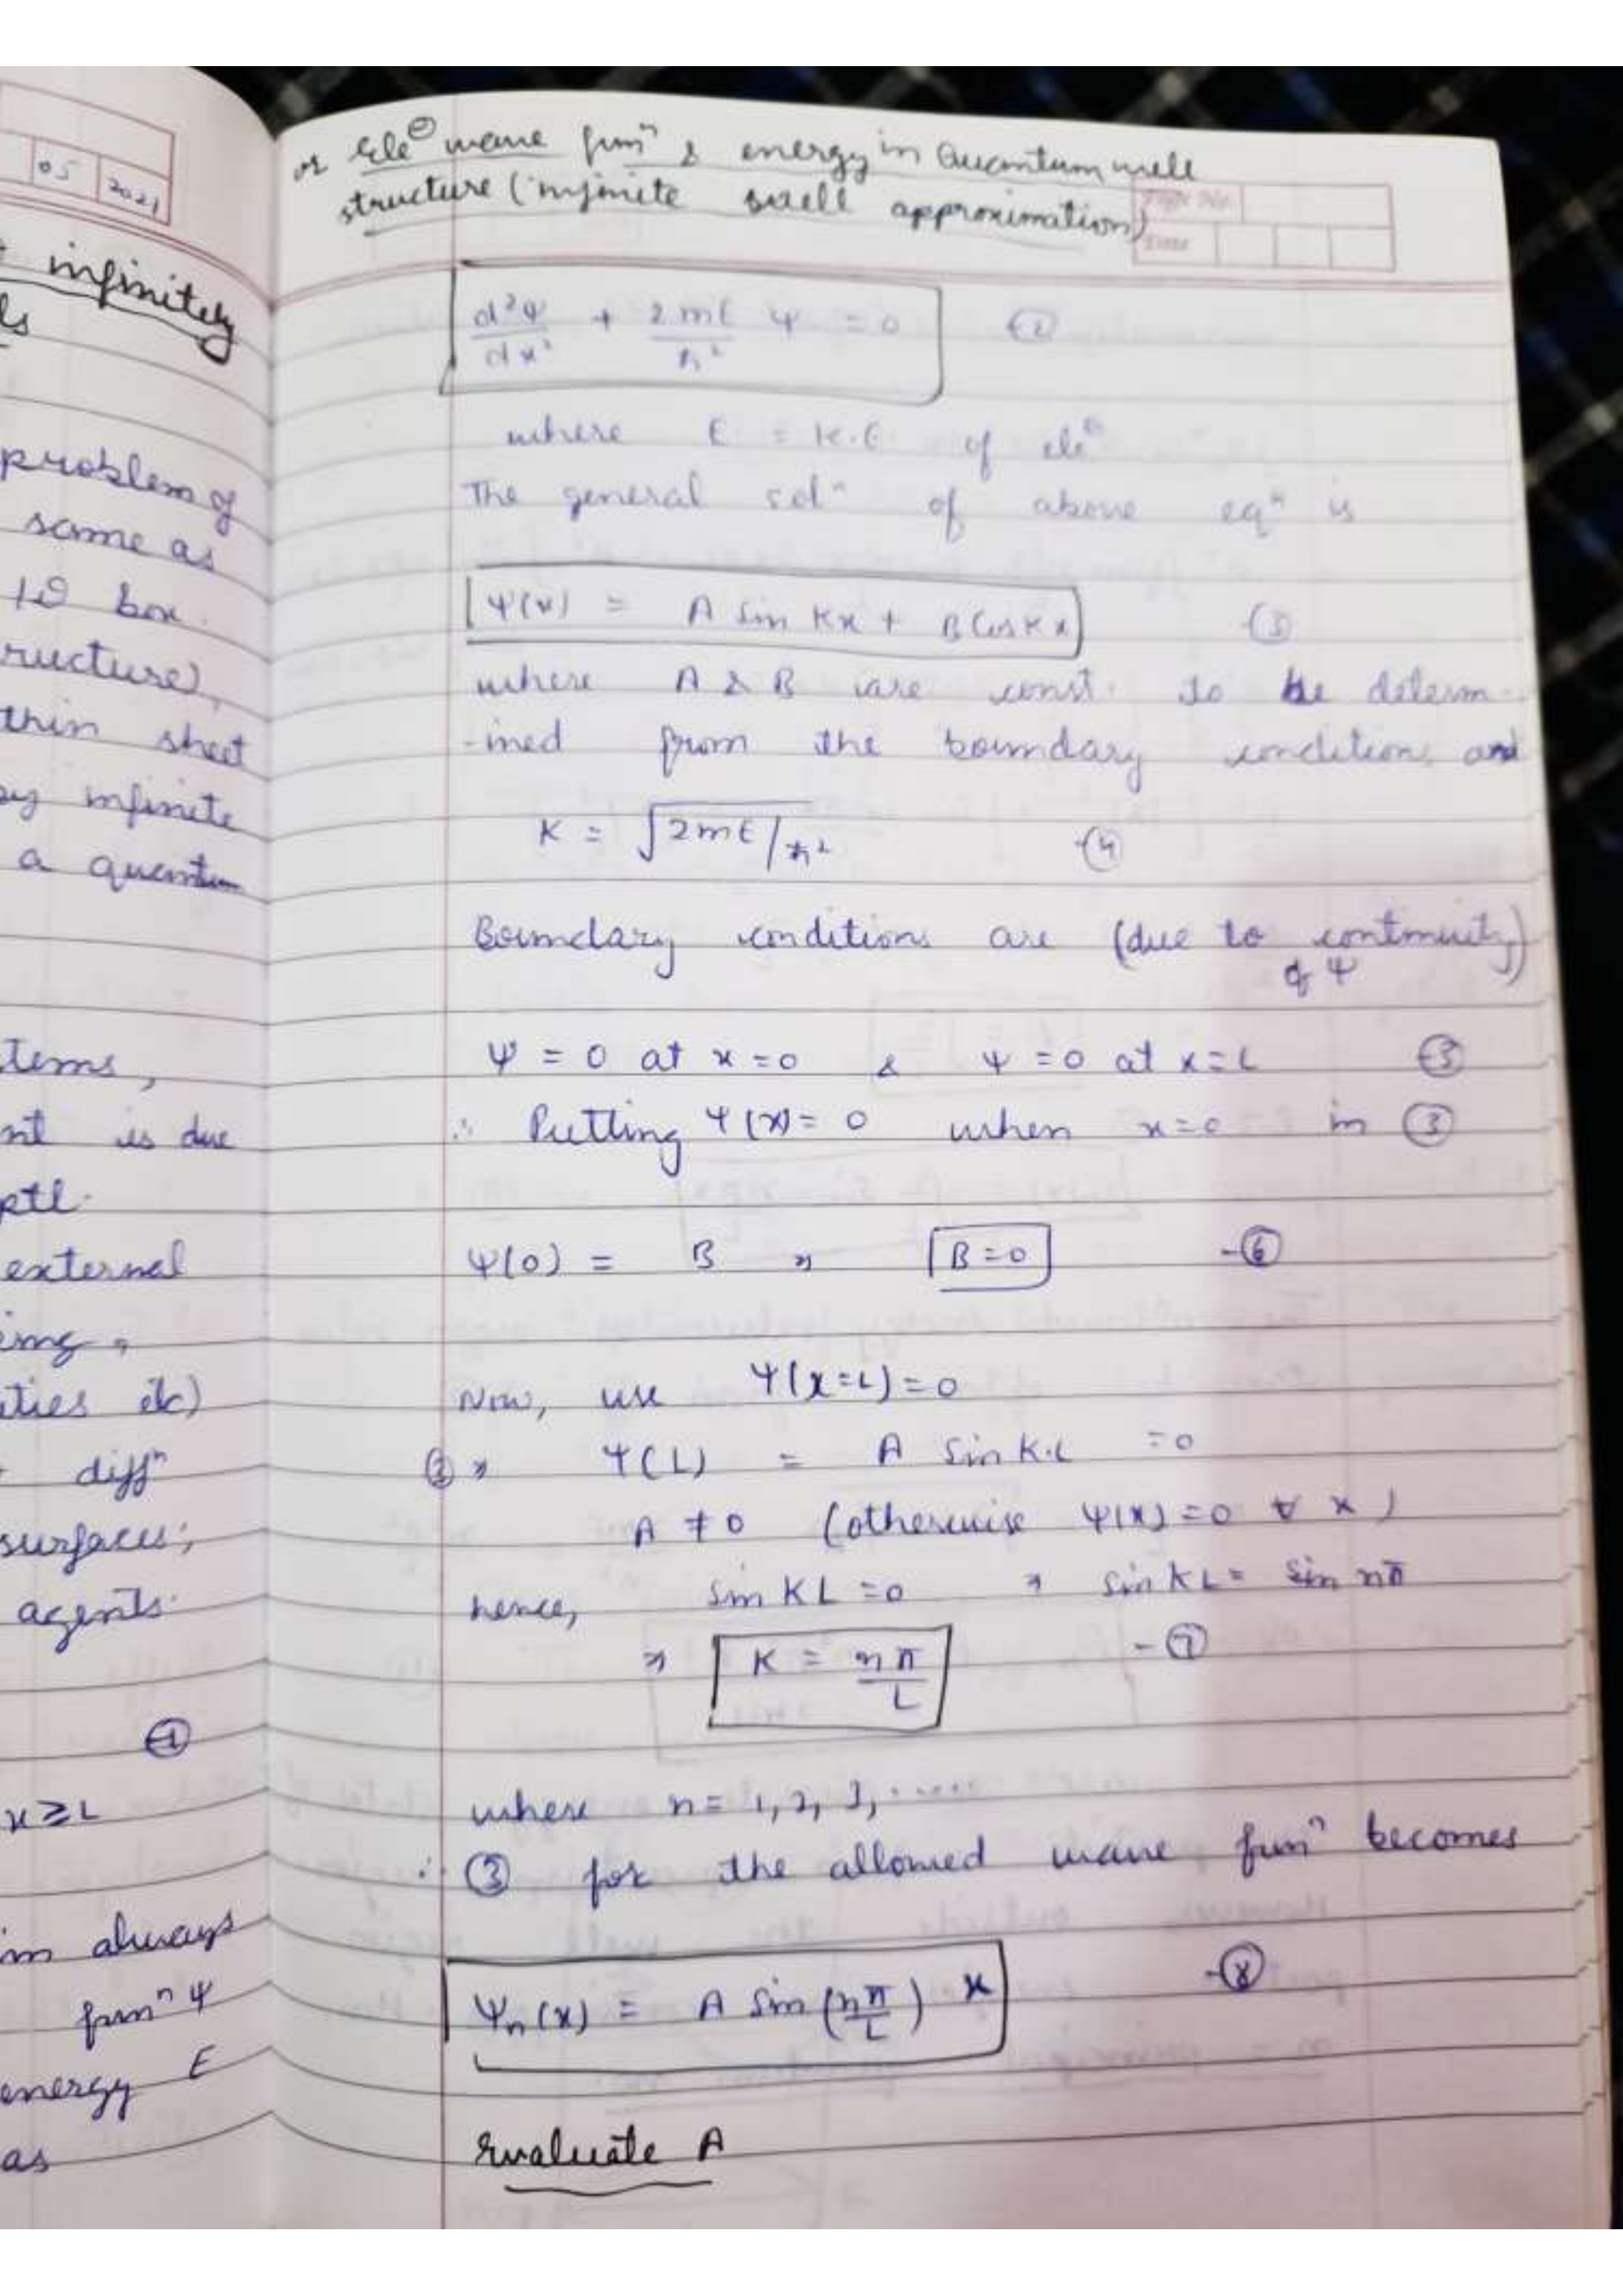 05 2021
infinitely
ls
problem of
same as
1D box.
ructure),
thin sheet
infinite
a quantum
tems,
nt is due
ptl.
external
ing,
ties etc)
diffⁿ
surfaces;
agents.
-①
x≥L
im always
funⁿ Ψ
energy E
as
or Ele⊖ wave funⁿ & energy in Quantum well
structure (infinite well approximation)
Page No.
Date
d²Ψ/dx² + 2mE/ħ² Ψ = 0 -②
where E = K.E of ele⊖
The general solⁿ of above eqⁿ is
Ψ(x) = A Sin Kx + B Cos Kx -③
where A & B are const. to be determ-
-ined from the boundary conditions and
K = √2mE/ħ² -④
Boundary conditions are (due to continuity
of Ψ)
Ψ = 0 at x = 0 & Ψ = 0 at x = L -⑤
∴ Putting Ψ(x) = 0 when x = 0 in ③
Ψ(0) = B ⇒ B = 0 -⑥
Now, use Ψ(x=L) = 0
③ ⇒ Ψ(L) = A Sin K.L = 0
A ≠ 0 (otherwise Ψ(x) = 0 ∀ x)
hence, Sin KL = 0 ⇒ Sin KL = Sin nπ
⇒ K = nπ/L -⑦
where n = 1, 2, 3, ......
∴ ③ for the allowed wave funⁿ becomes
Ψₙ(x) = A Sin (nπ/L) x -⑧
Evaluate A